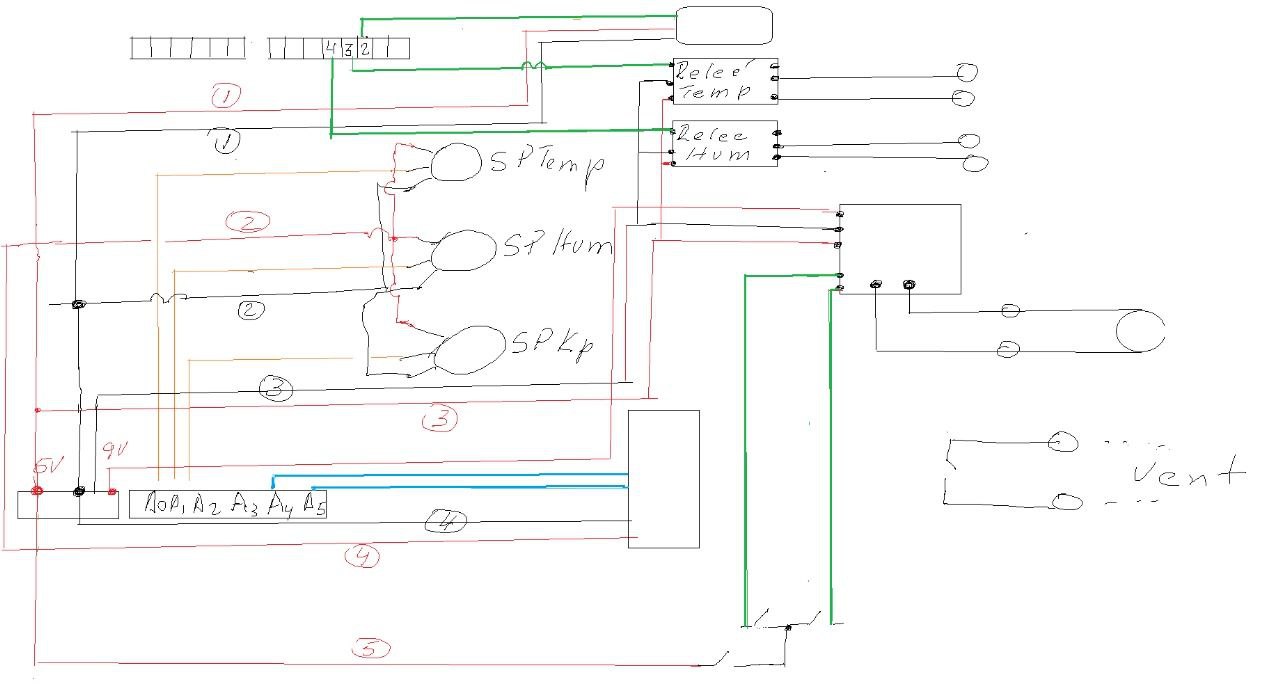 4 3 2
Releé
Temp
1
1
Relee
Hum
SPTemp
2
SP Hum
2
SPKp
3
3
5V
9V
A0 A1 A2 A3 A4 A5
4
4
Vent
5